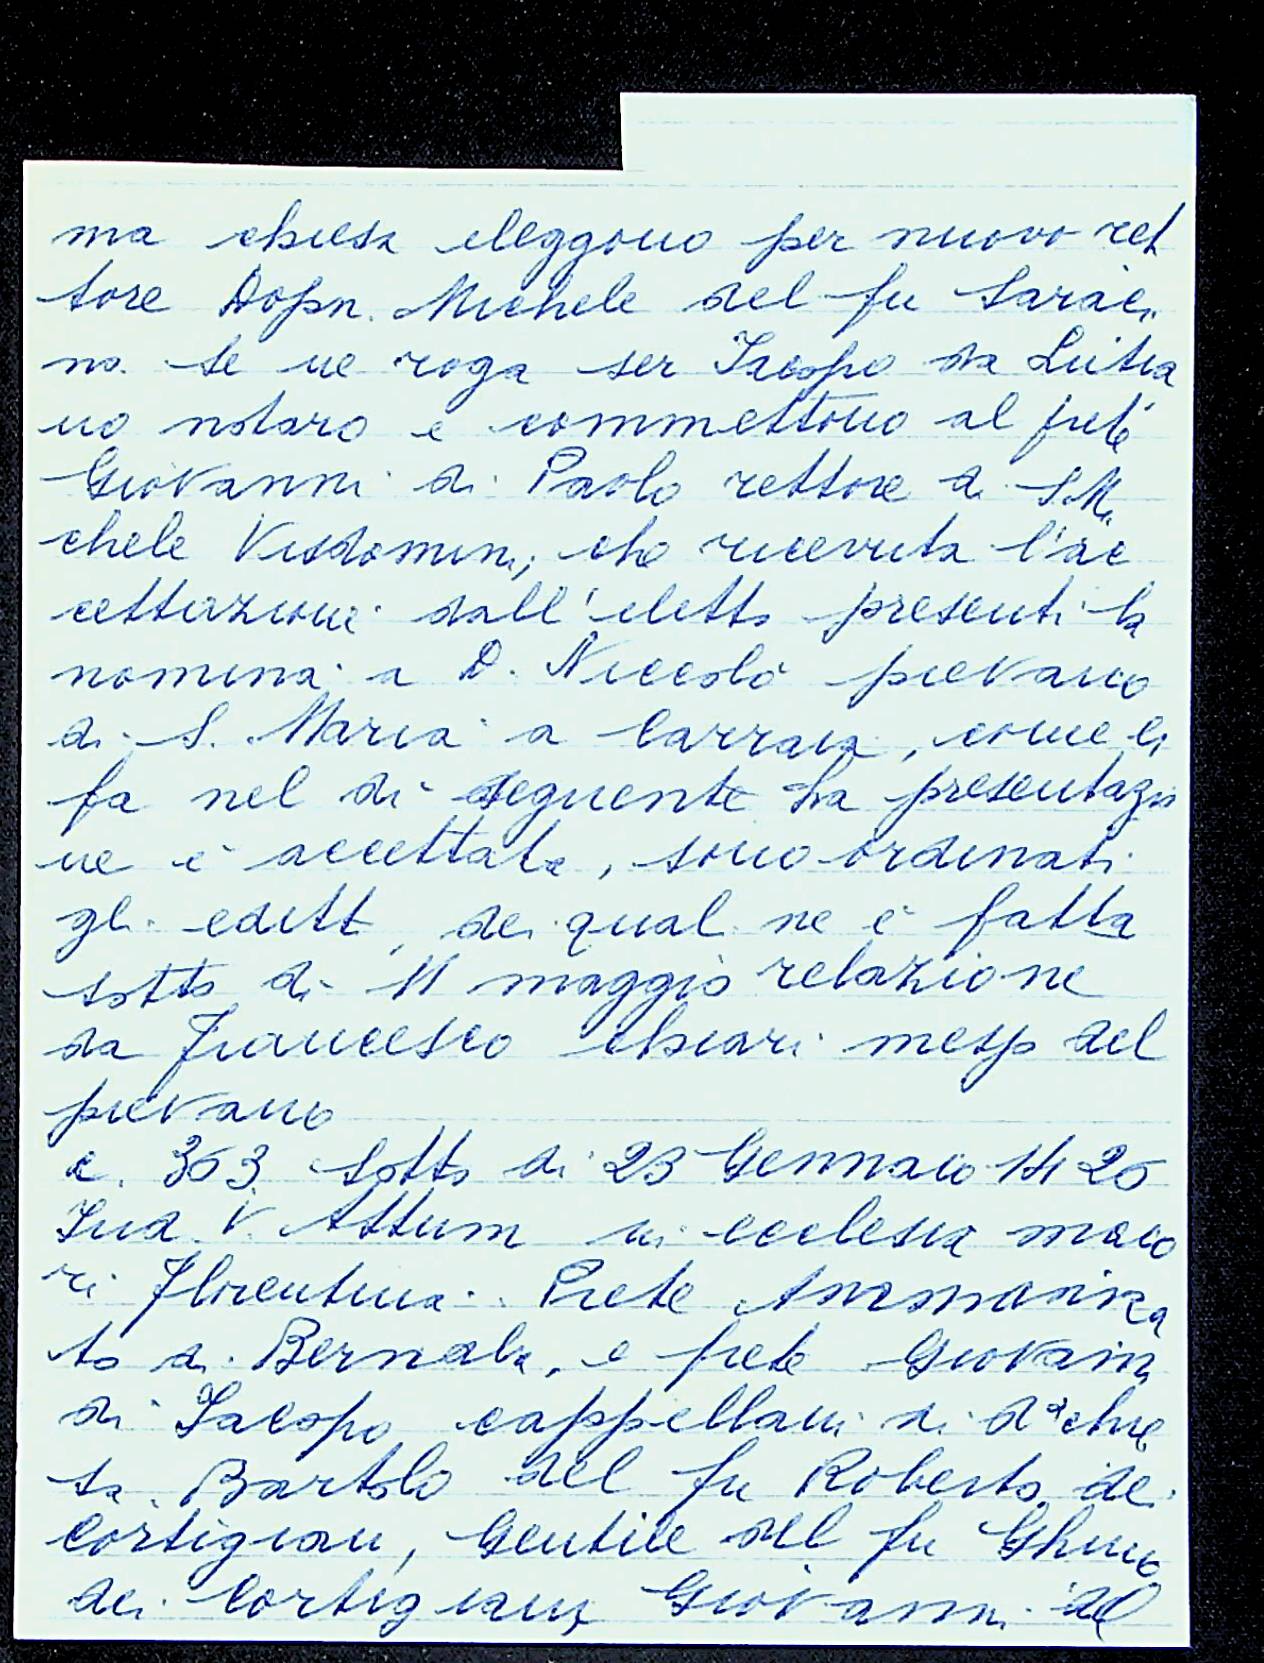 ma chiesa eleggono per nuovo ret
tore Dopn. Michele del fu Saraci
no. Se ne roga ser Jacopo da
no notaro e commettono al prete
Giovanni di Paolo rettore di S. Mi
chele Visdomini, che ricevuta l'ac
cettazione dall'eletto presenti la
nomina a D. Niccolò pievano
di S. Maria a Carraia, come li
fa nel dì seguente la presentazio
ne è accettata, sono ordinati
gli editti, dei quali ne è fatta
sotto dì 11 maggio relazione
da Francesco Chiari mesp del
pievano
c. 363 sotto dì 23 Gennaio 1420
Ind. V. Attum in ecclesia maio
ri Florentina. Prete Ammanna
to di Bernaba, e prete Giovanni
di Jacopo cappellani di dª chie
sa. Bartolo del fu Roberto dei
Cortigiani, Gentile del fu Ghino
dei Cortigiani Giovanni del